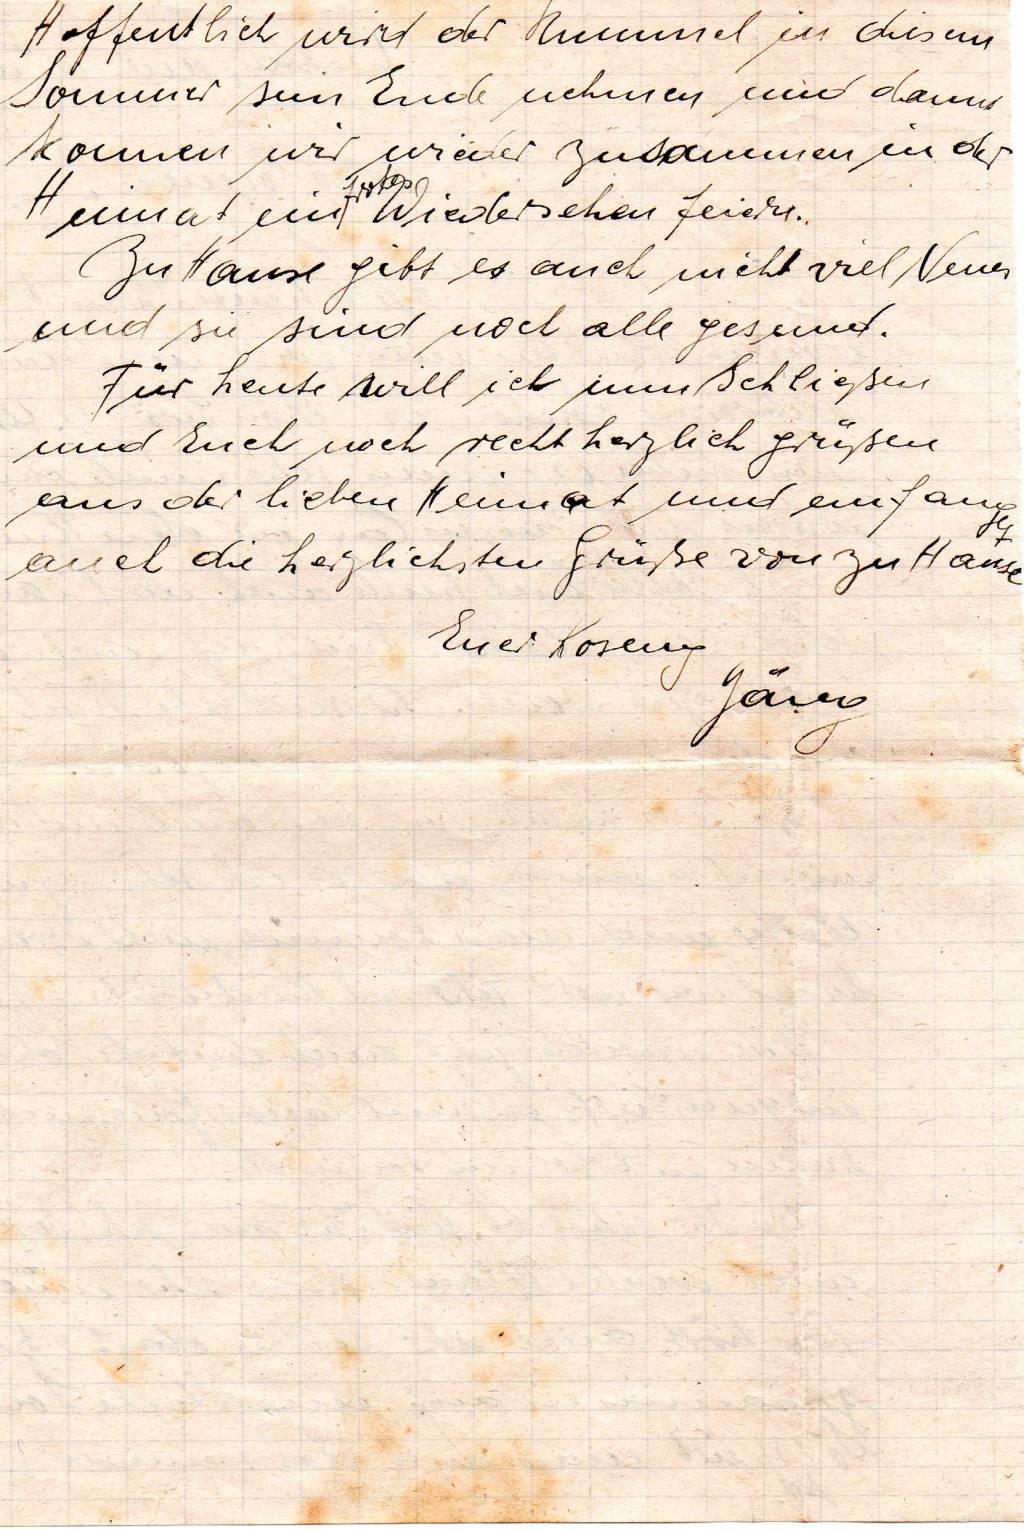 Hoffentlich wird der Rummel in diesem
Sommer sein Ende nehmen und dann
können wir wieder zusammen in der
Heimat ein frohes Wiedersehen feiern.
Zu Hause gibt es auch nicht viel Neues
und sie sind noch alle gesund.
Für heute will ich nun Schließen
und Euch noch recht herzlich grüßen
aus der lieben Heimat und empfanget
auch die herzlichsten Grüße von zu Hause
Euer